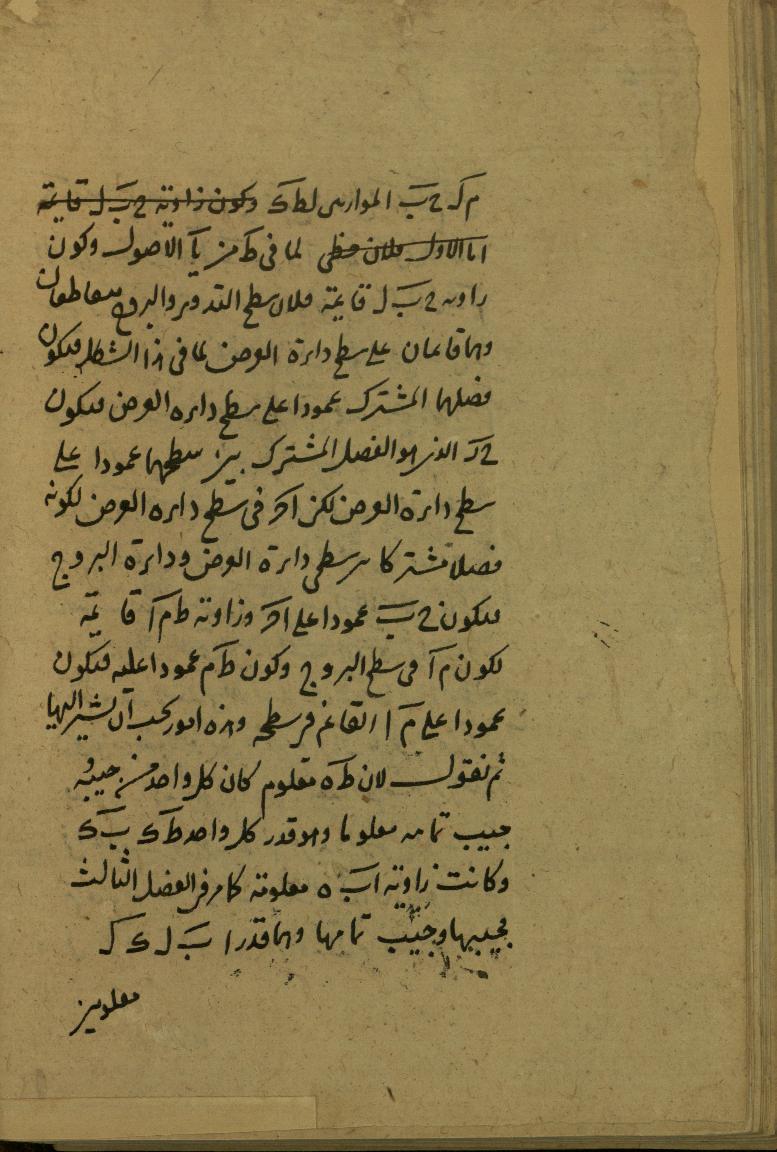 م ك ح ب الموازيين لط ك وكون زاوية ح ب ل قائمة
اما الاول فلان خطى لما فى ط من يا الاصول وكون
زاوية ح ب ل قائمة فلان سطح التدوير والبروج متقاطعان
وهما قائمان على سطح دايرة العرض لما فى هذا الشكل فيكون
فصلهما المشترك عمودا على سطح دايره العرض فيكون
الذى هو الفصل المشترك بين سطحهما عمودا على
سطح دايرة العرض لكن فى سطح دايره العرض لكونه
فصلا مشتركا بين سطحى دايرة العرض ودايرة البروج
فيكون ح ب عمودا على وزاوية ط م ا قائمة
لكون م ا فى سطح البروج وكون ط م عمودا عليه فيكون
عمودا على م ا القائم فى سطحه وهذه امور يجب ان يشير اليها
ثم نقول لان ط ه معلوم كان كل واحد من جيبه و
جيب تمامه معلوما وهو قدر كل واحد ط ك ب ك
وكانت زاوية ا ب ه معلومة كما مر فى الفصل الثالث
فجيبها وجيب تمامها وهما قدرا ب ل ك ل
معلومين